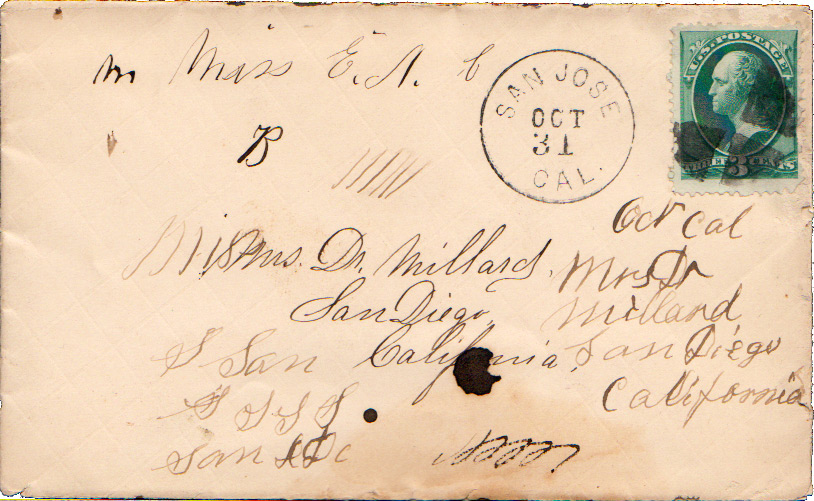 m Miss E. A. C
SAN JOSE
OCT
31
CAL.
U.S. POSTAGE
3 CENTS
B
Oct Cal
Mrs. Dr. Millard,
San Diego,
California,
Mrs Dr
Millard
San Diego
California
S San
S S S S
San D c